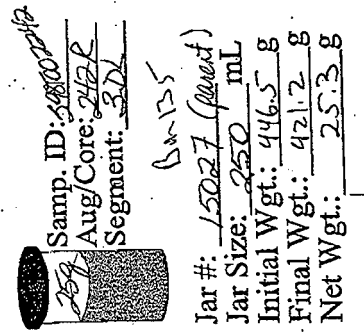 25g
Samp. ID: S98T002242
Aug/Core: 242R
Segment: 3DL
Jar #: 15027 (parent)
Jar Size: 250 mL
Initial Wgt.: 446.5 g
Final Wgt.: 421.2 g
Net Wgt.: 25.3 g